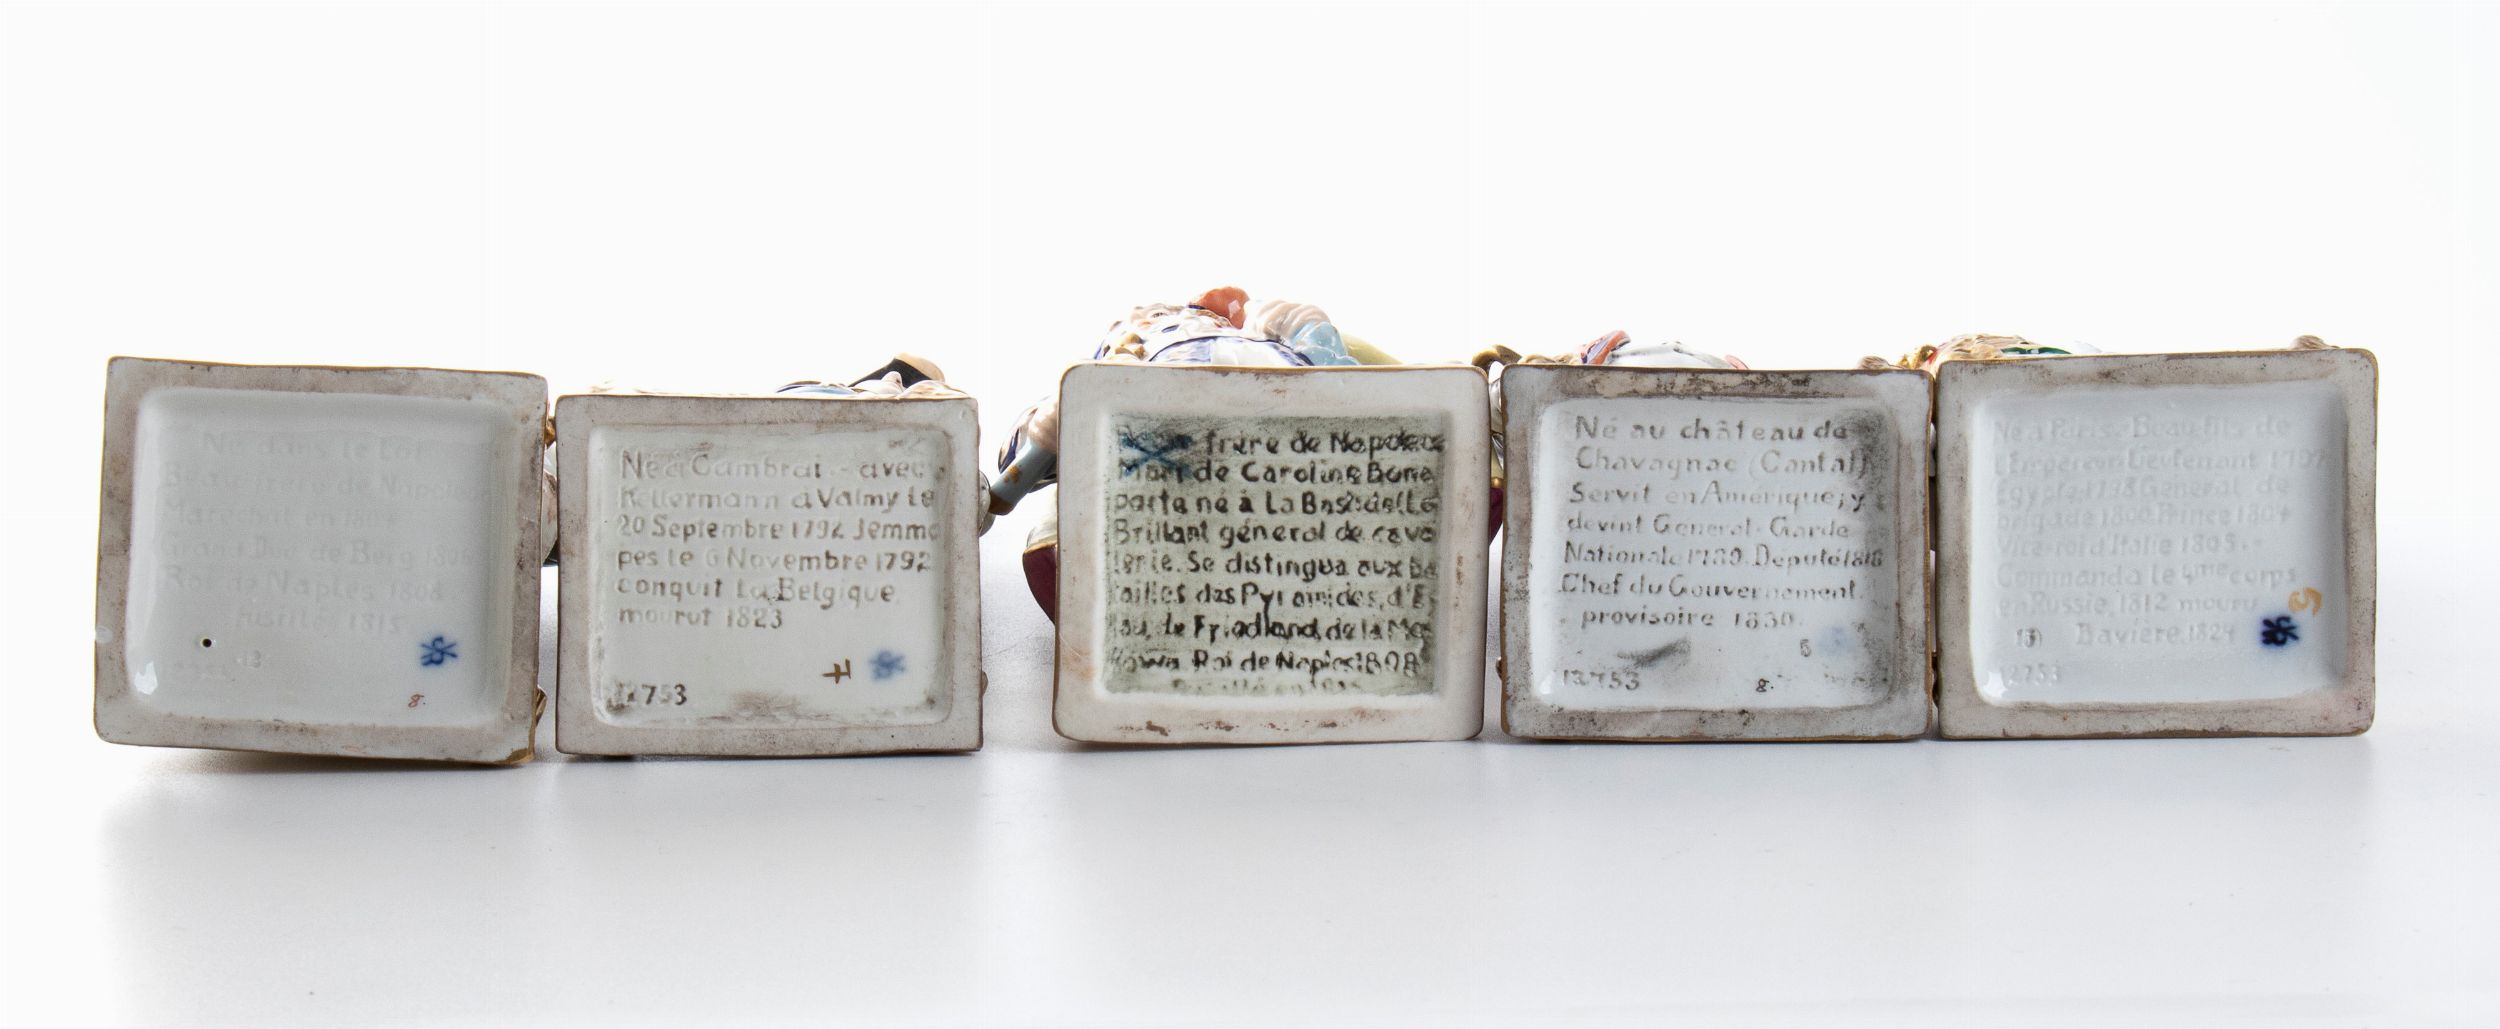 Né dans le Lot
Beau frère de Napoleon
Marechal en 1804
Grand Duc de Berg 1806
Roi de Naples 1808
fusillé 1815
13
8.
Né à Cambrai - avec
Kellermann a Valmy le
20 Septembre 1792 Jemma
pes le 6 Novembre 1792
conquit La Belgique
mourut 1823
7
12753
frère de Napoleo
Mari de Caroline Bona
parte né à La Bastide
Brillant général de cava
lerie. Se distingua aux ba
tailles des Pyramides, d'Ey
lau, de Friedland, de la Mos
kowa Roi de Naples 1808
Né au château de
Chavagnac (Cantal)
Servit en Amérique, y
devint General - Garde
Nationale 1789. Deputé 1818
Chef du Gouvernement
provisoire 1830.
12753
8.
Né à Paris. Beau fils de
l'Empereur Lieutenant 1797
Egypte 1798 General de
brigade 1800 Prince 1804
Vice-roi d'Italie 1805.-
Commanda le 4me corps
en Russie, 1812 mouru
Bavière 1824
12753